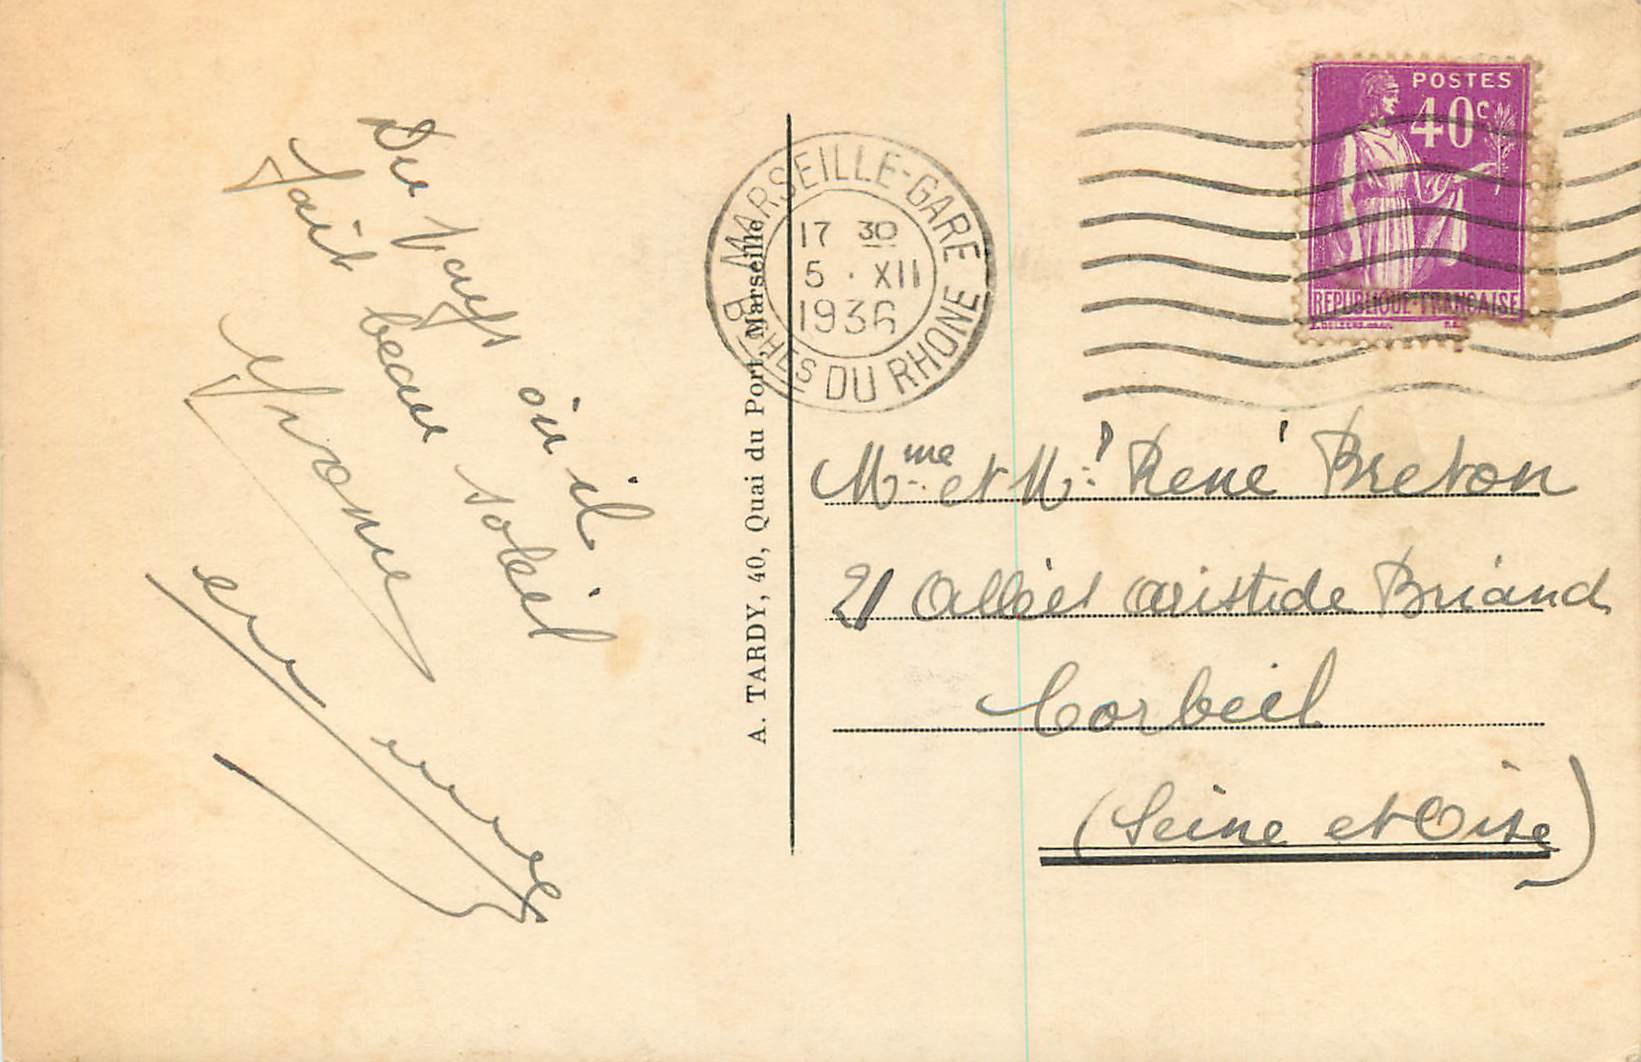 Du pays où il
fait beau soleil
Yvonne
A. TARDY, 40, Quai du Port, Marseille
MARSEILLE-GARE
17 30
5 · XII
1936
BCHES DU RHONE
POSTES
40c
REPUBLIQUE-FRANÇAISE
Mme et Mr René Breton
21 Allées Aristide Briand
Corbeil
(Seine et Oise)